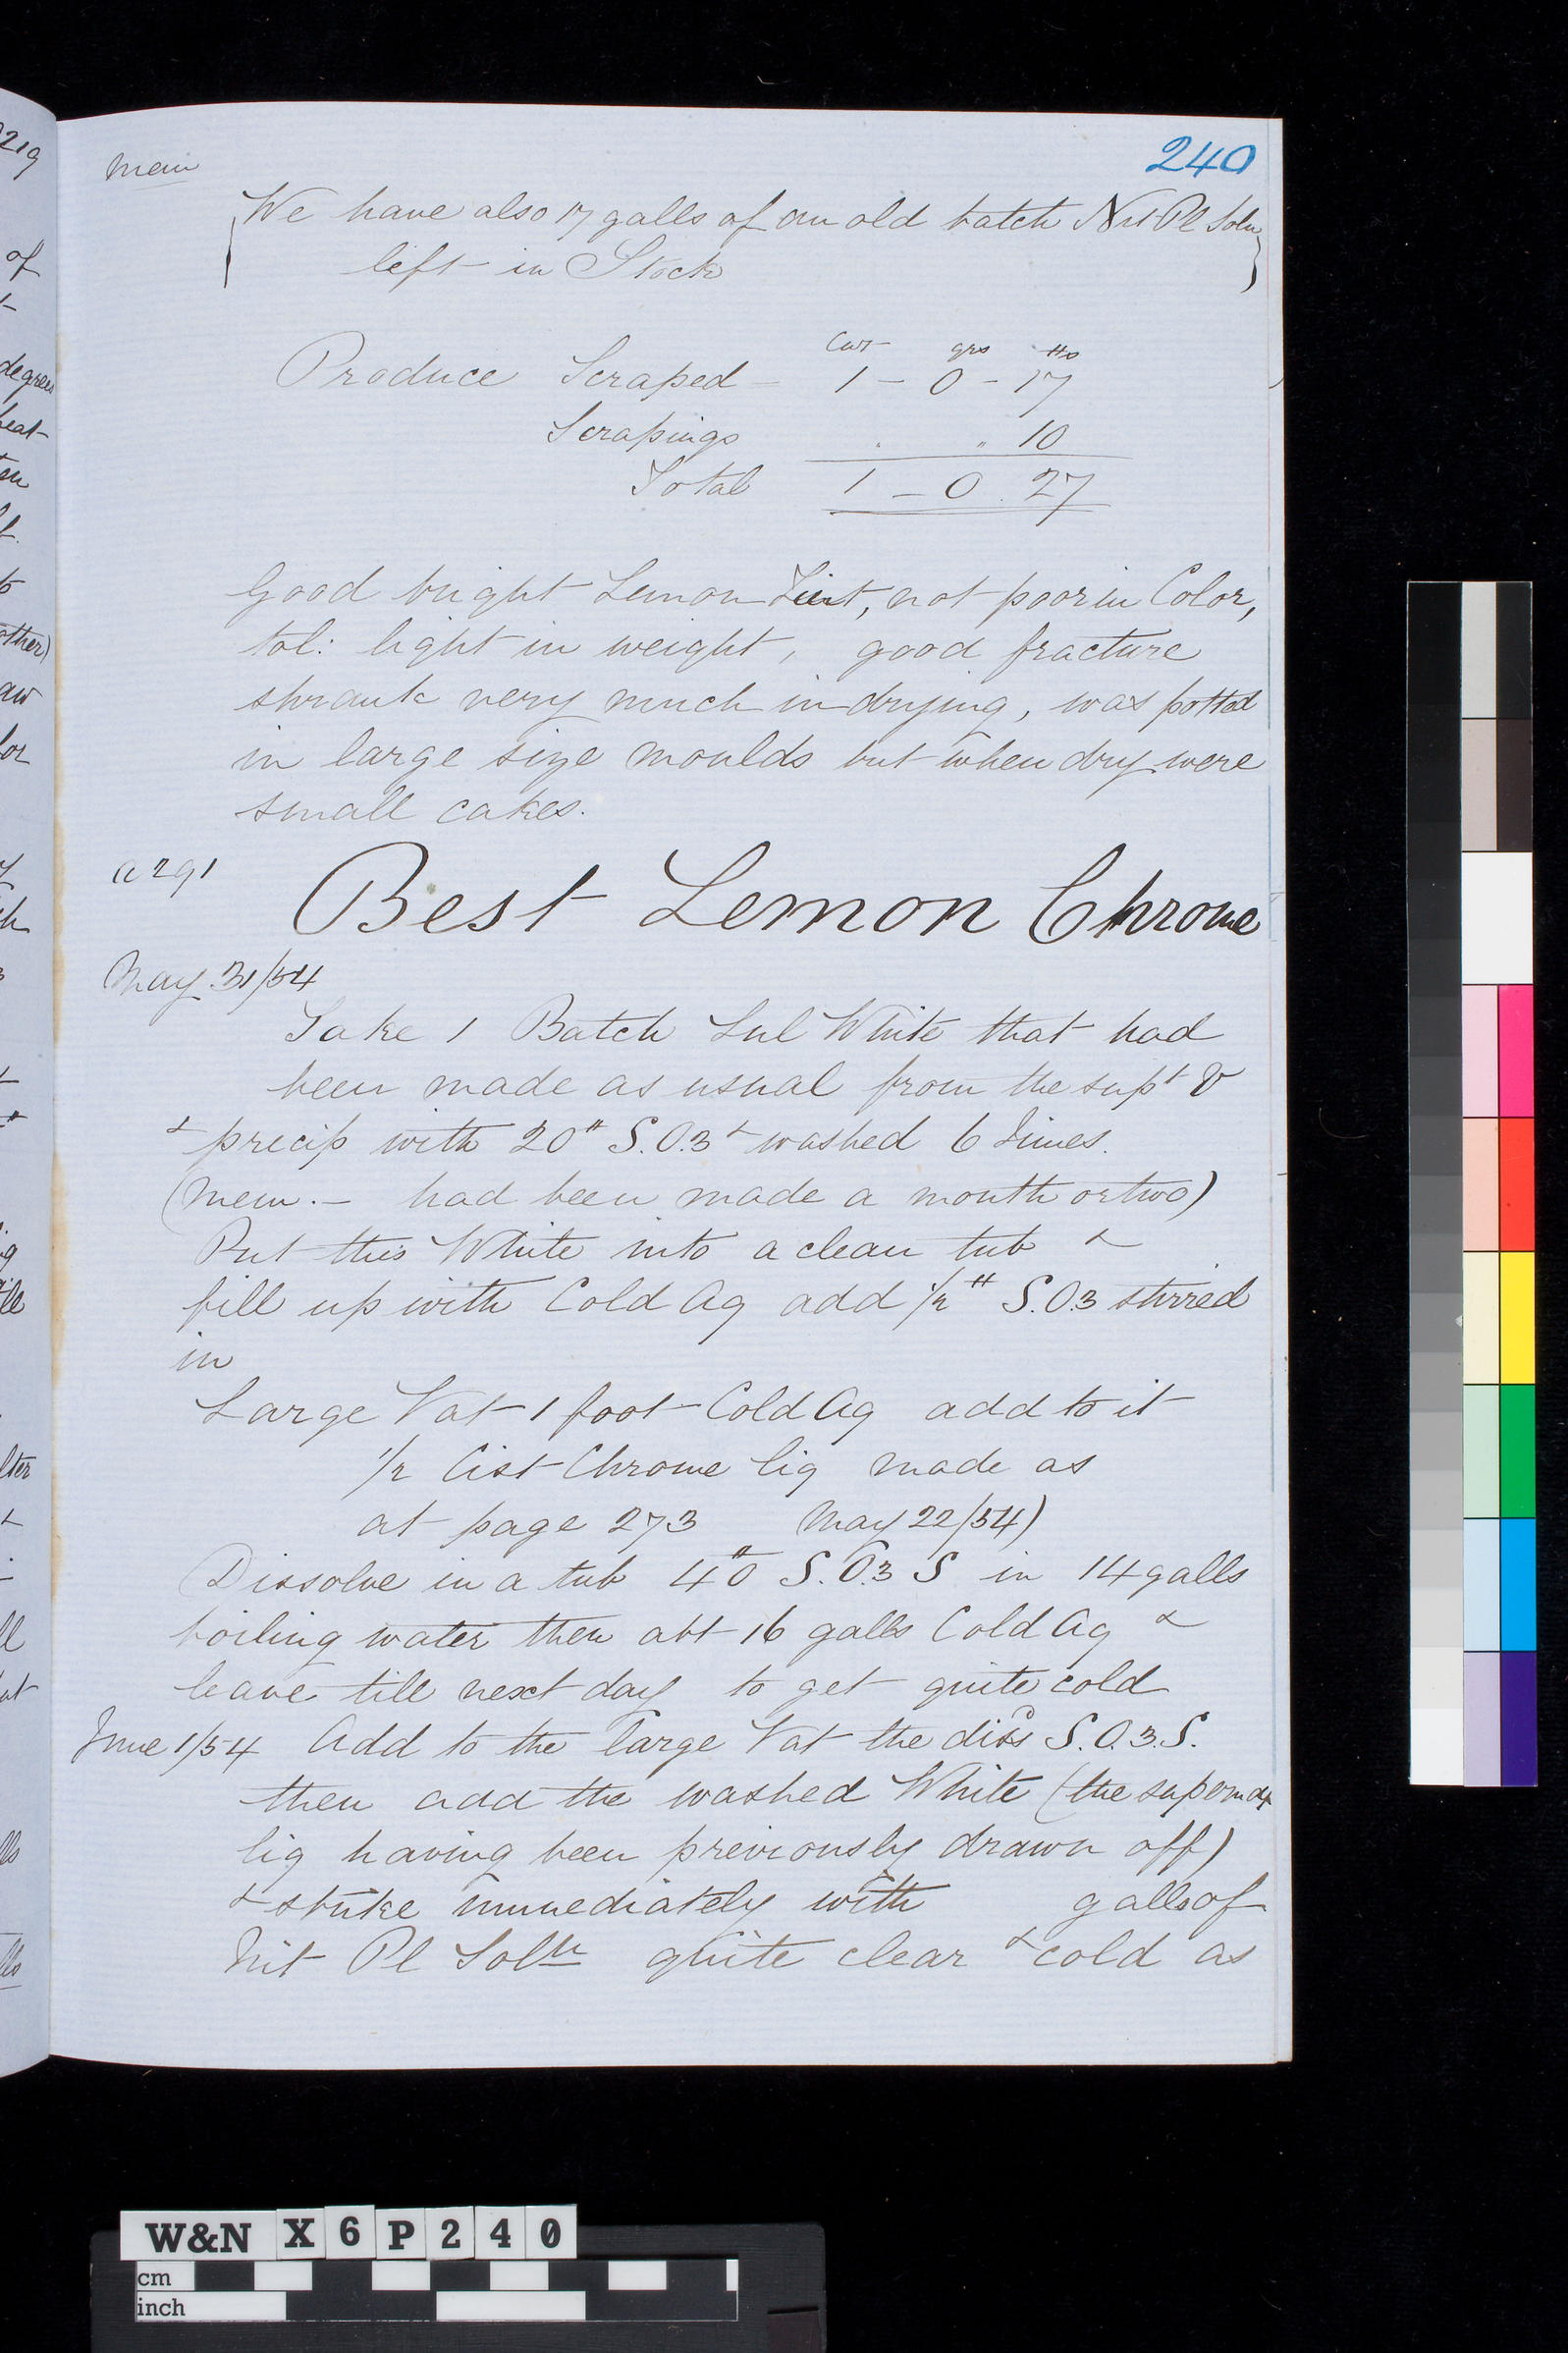 240
mem
We have also 17 galls of an old batch Nit Pl Soln
left in Stock
Cwt qrs lbs
Produce Scraped - 1 - 0 - 17
Scrapings " " 10
Total 1 - 0 . 27
Good bright Lemon Tint, not poor in Color,
tol: light in weight, good fracture
shrank very much in drying, was potted
in large size moulds but when dry were
small cakes.
a 291
Best Lemon Chrome
May 31/54
Take 1 Batch Sul White that had
been made as usual from the supt
& precip with 20# S.O.3 & washed 6 times.
(mem. - had been made a month or two)
Put this White into a clean tub &
fill up with Cold Aq add 1/2 # S.O.3 stirred
in
Large Vat 1 foot Cold Aq add to it
1/2 Cist Chrome liq made as
at page 273 May 22/54)
Dissolve in a tub 40# S.O.3 S in 14 galls
boiling water then abt 16 galls Cold Aq &
leave till next day to get quite cold
June 1/54 Add to the large Vat the diss S.O.3.S.
then add the washed White (the
liq having been previously drawn off)
& strike immediately with galls of
Nit Pl Soln quite clear & cold as
219
of
degrees
heat
other)
W&N X 6 P 2 4 0
cm
inch